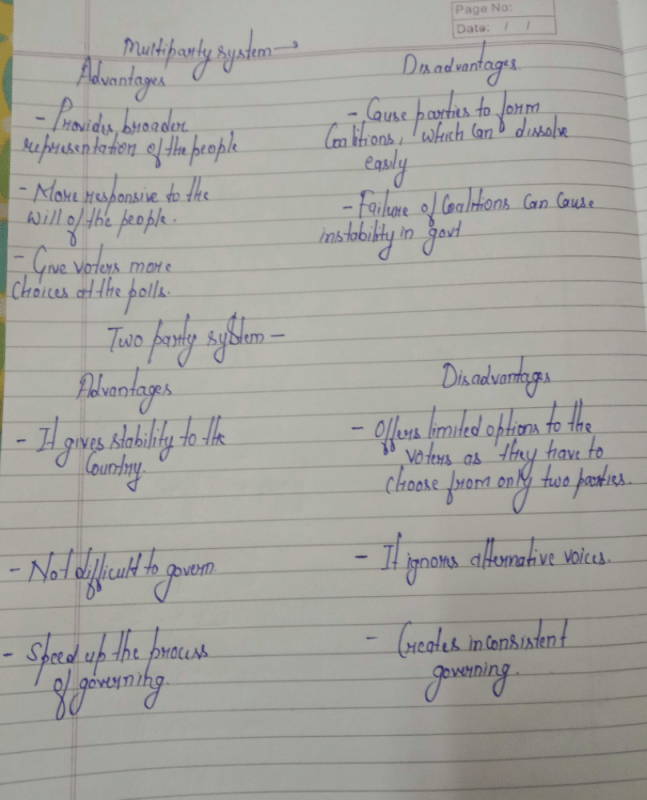 Page No:
Date: / /
Multiparty system →
Advantages
- Provides broader
representation of the people
- More responsive to the
will of the people.
- Give voters more
choices at the polls.
Disadvantages
- Cause parties to form
Coalitions, which can dissolve
easily
- Failure of Coalitions Can Cause
instability in govt
Two party system -
Advantages
- It gives stability to the
Country.
- Not difficult to govern
- Speed up the process
of governing.
Disadvantages
- Offers limited options to the
voters as they have to
choose from only two parties.
- It ignores alternative voices.
- Creates inconsistent
governing.